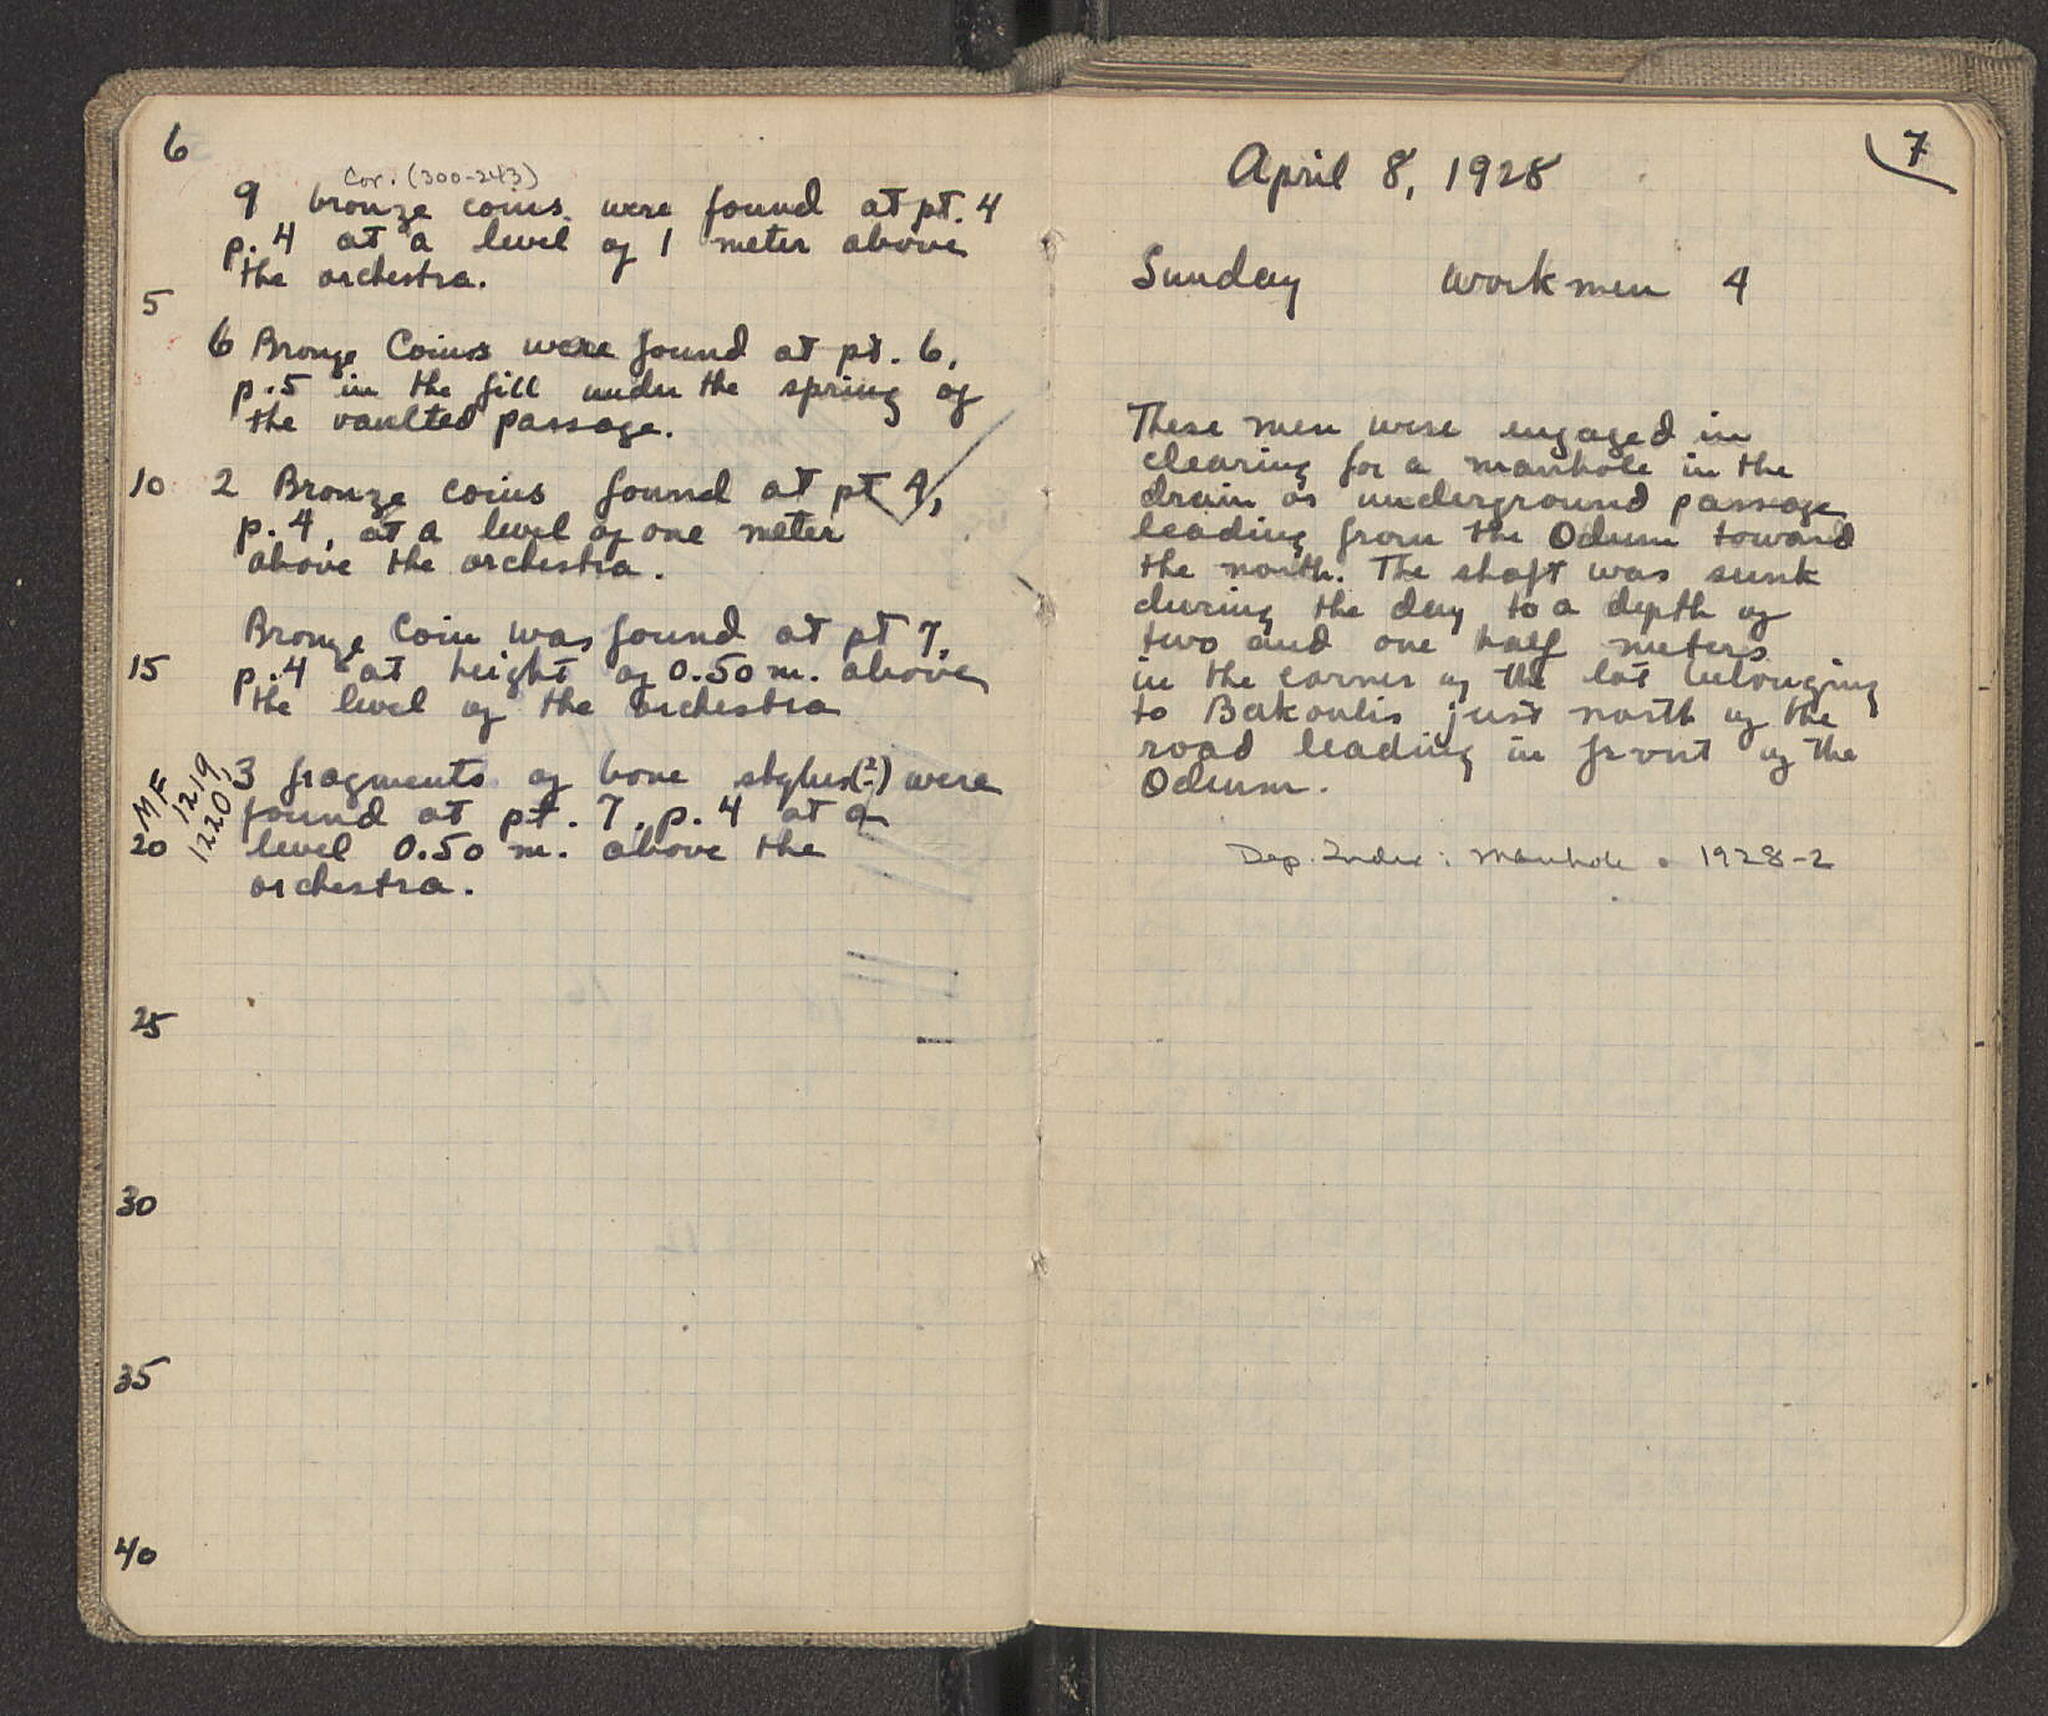 6
Cor. (300-243)
9 bronze coins were found at pt. 4
p. 4 at a level of 1 meter above
the orchestra.
5
6 Bronze Coins were found at pt. 6,
p. 5 in the fill under the spring of
the vaulted passage.
10 2 Bronze coins found at pt 4,
p. 4, at a level of one meter
above the orchestra.
Bronze Coin was found at pt 7,
15 p. 4 at height of 0.50 m. above
the level of the orchestra
MF 1219, 1220
3 fragments of bone stylus(?) were
found at pt. 7, p. 4 at a
20 level 0.50 m. above the
orchestra.
25
30
35
40
7
April 8, 1928
Sunday Workmen 4
These men were engaged in
clearing for a manhole in the
drain or underground passage
leading from the Odeum toward
the north. The shaft was sunk
during the day to a depth of
two and one half meters
in the corner of the lot belonging
to Bakoulis just north of the
road leading in front of the
Odeum.
Dep. Index: Manhole 1928-2